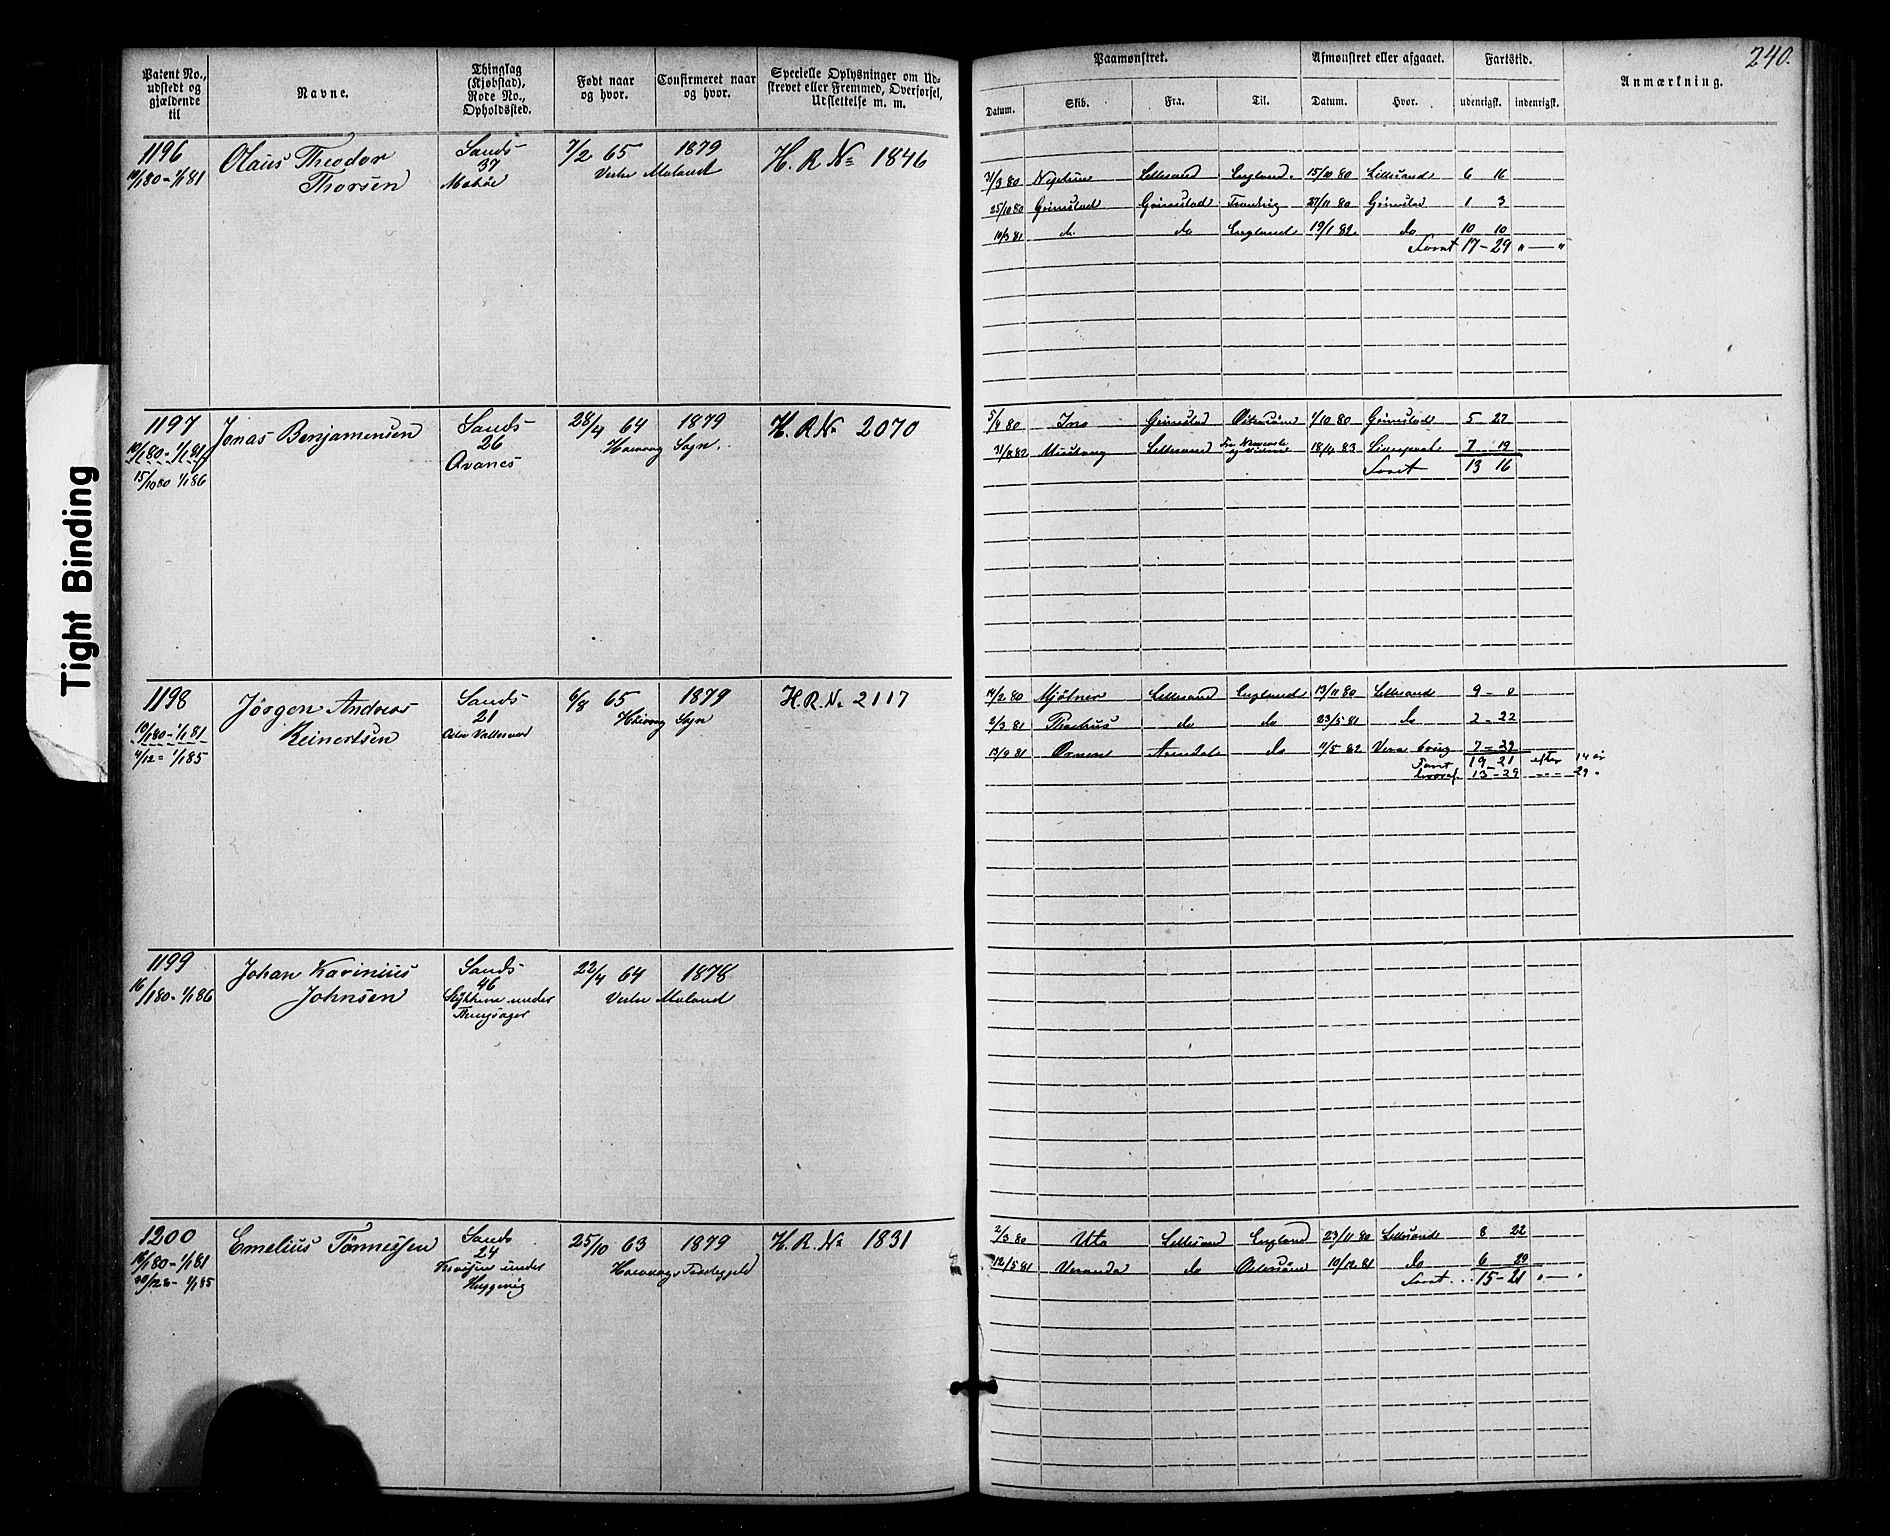 Tight Binding
240.
Patent No., udstedt og gjældende til
Navne.
Thinglag (Kjøbstad), Rode No., Opholdssted.
Født naar og hvor.
Confirmeret naar og hvor.
Specielle Oplysninger om Udstrevet eller Fremmed, Overførsel, Udslettelse m. m.
Paamønstret.
Afmønstret eller afgaaet.
Fartstid.
Anmærkning.
Datum. Skib. Fra. Til. Datum. Hvor. udenrigsk. indenrigsk.
1196 Olaus Theodor Sands 7/2 65 1879 H. R. No 1846
10/1 80 - 1/1 81 Thorsen 37 Vestre Moland
3/3 80 Neptun Lillesand England. 15/10 80 Lillesand 6 16
25/10 80 Grimstad Grimstad 27/11 80 Grimstad 1 3
10/3 81 do do England 19/1 82 do 10 10
17 - 29 " — "
1197 Jonas Benjamensen Sands 28/4 64 1879 H. R. No 2070
10/1 80 - 1/1 81 26 Høivaag Sogn.
15/10 80 1/1 86
5/4 80 Ino Grimstad Østersøen 1/10 80 Grimstad 5 27
31/8 82 Mustang Lillesand 18/4 83 Liverpool 7 19
13 16
1198 Jørgen Andreas Sands 6/8 65 1879 H. R. No 2117
10/1 80 - 1/1 81 Reinertsen 21 Høivaag Sogn
4/12 - 1/1 85 Østre Vallesværd
14/2 80 Mjølner Lillesand England 13/11 80 Lillesand 9 - 0
2/3 81 do do 23/5 81 do 2 - 22
13/9 81 Ornen Arendal do 11/5 82 Vera Cruz 7 - 29
19 21 efter 14 år
hvoraf 13 - 29
1199 Johan Karinius Sands 22/4 64 1878
16/1 80 - 1/1 86 Johnsen 46 Vestre Moland
under
1200 Emelius Tönnesen Sands 25/10 63 1879 H. R. No 1831
16/1 80 - 1/1 81 24 under
1/1 85
2/3 80 Uto Lillesand England 23/11 80 Lillesand 8 22
12/5 81 Veranda do Østersøen 10/12 81 do 6 29
15 - 21